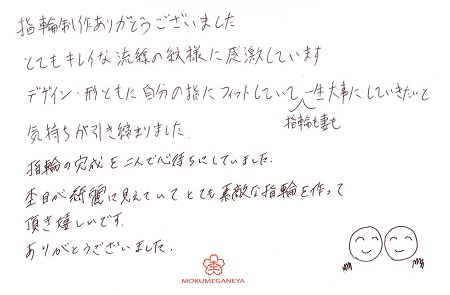 指輪制作ありがとうございました
とてもキレイな流線の紋様に感激しています
デザイン・形ともに自分の指にフィットしていて、一生大事にしていきたいと
指輪も妻も
気持ちが引き締まりました.
指輪の完成を二人で心待ちにしていました.
杢目が綺麗に見えていてとても素敵な指輪を作って
頂き嬉しいです.
ありがとうございました.
MOKUMEGANEYA